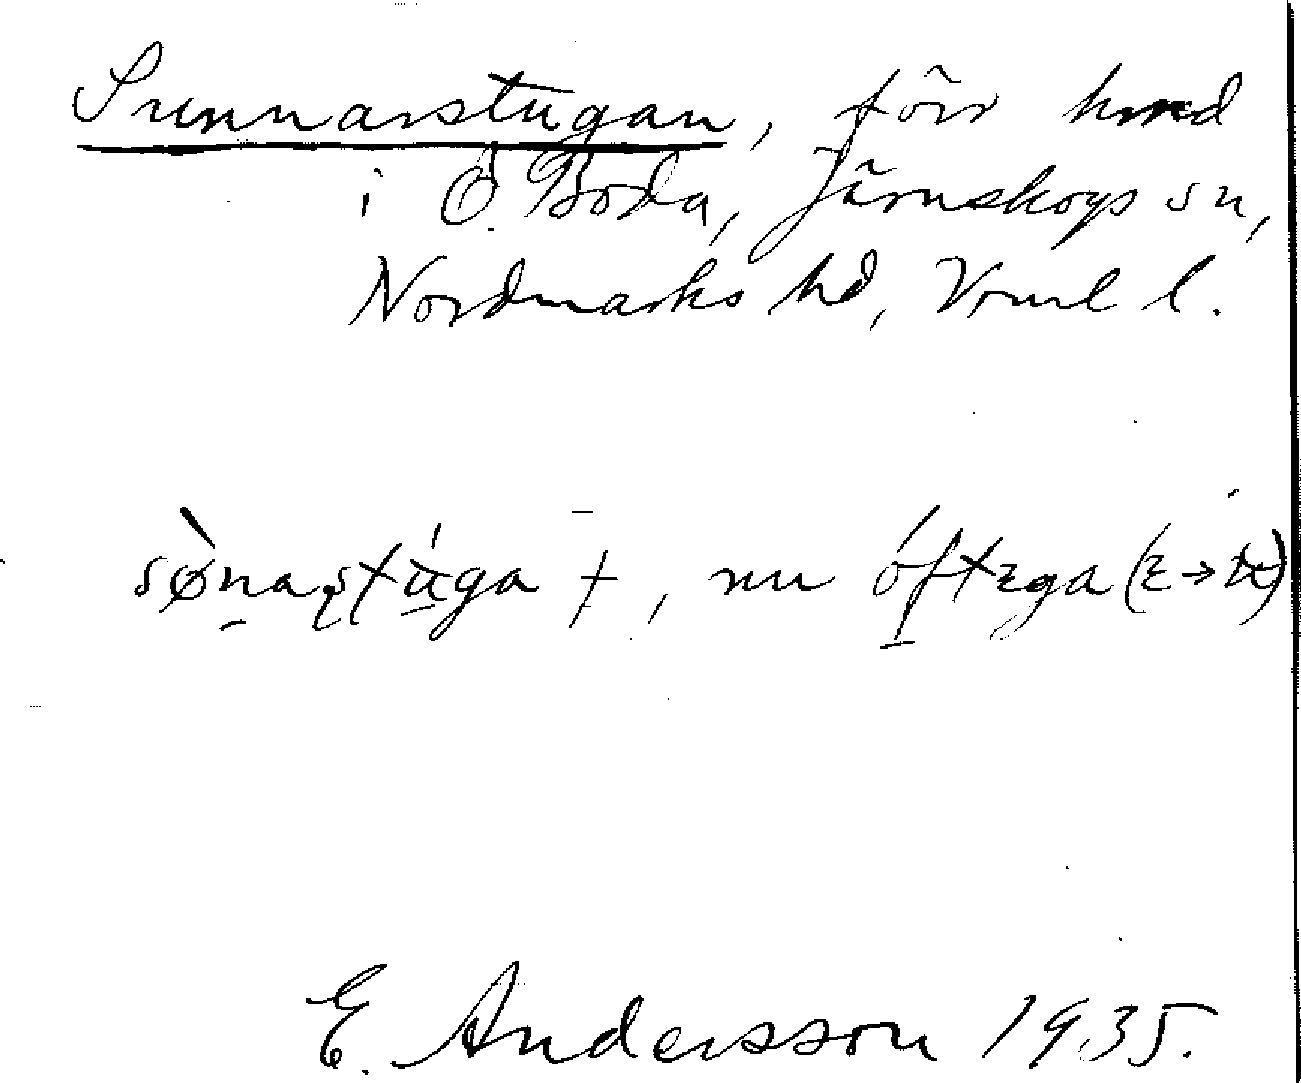 Sunnarstugan, förr hmd
i Ö. Boda, Järnskogs sn,
Nordmarks hd, Vrml l.
sø̀naʂtúga †, nu
E. Andersson 1935.